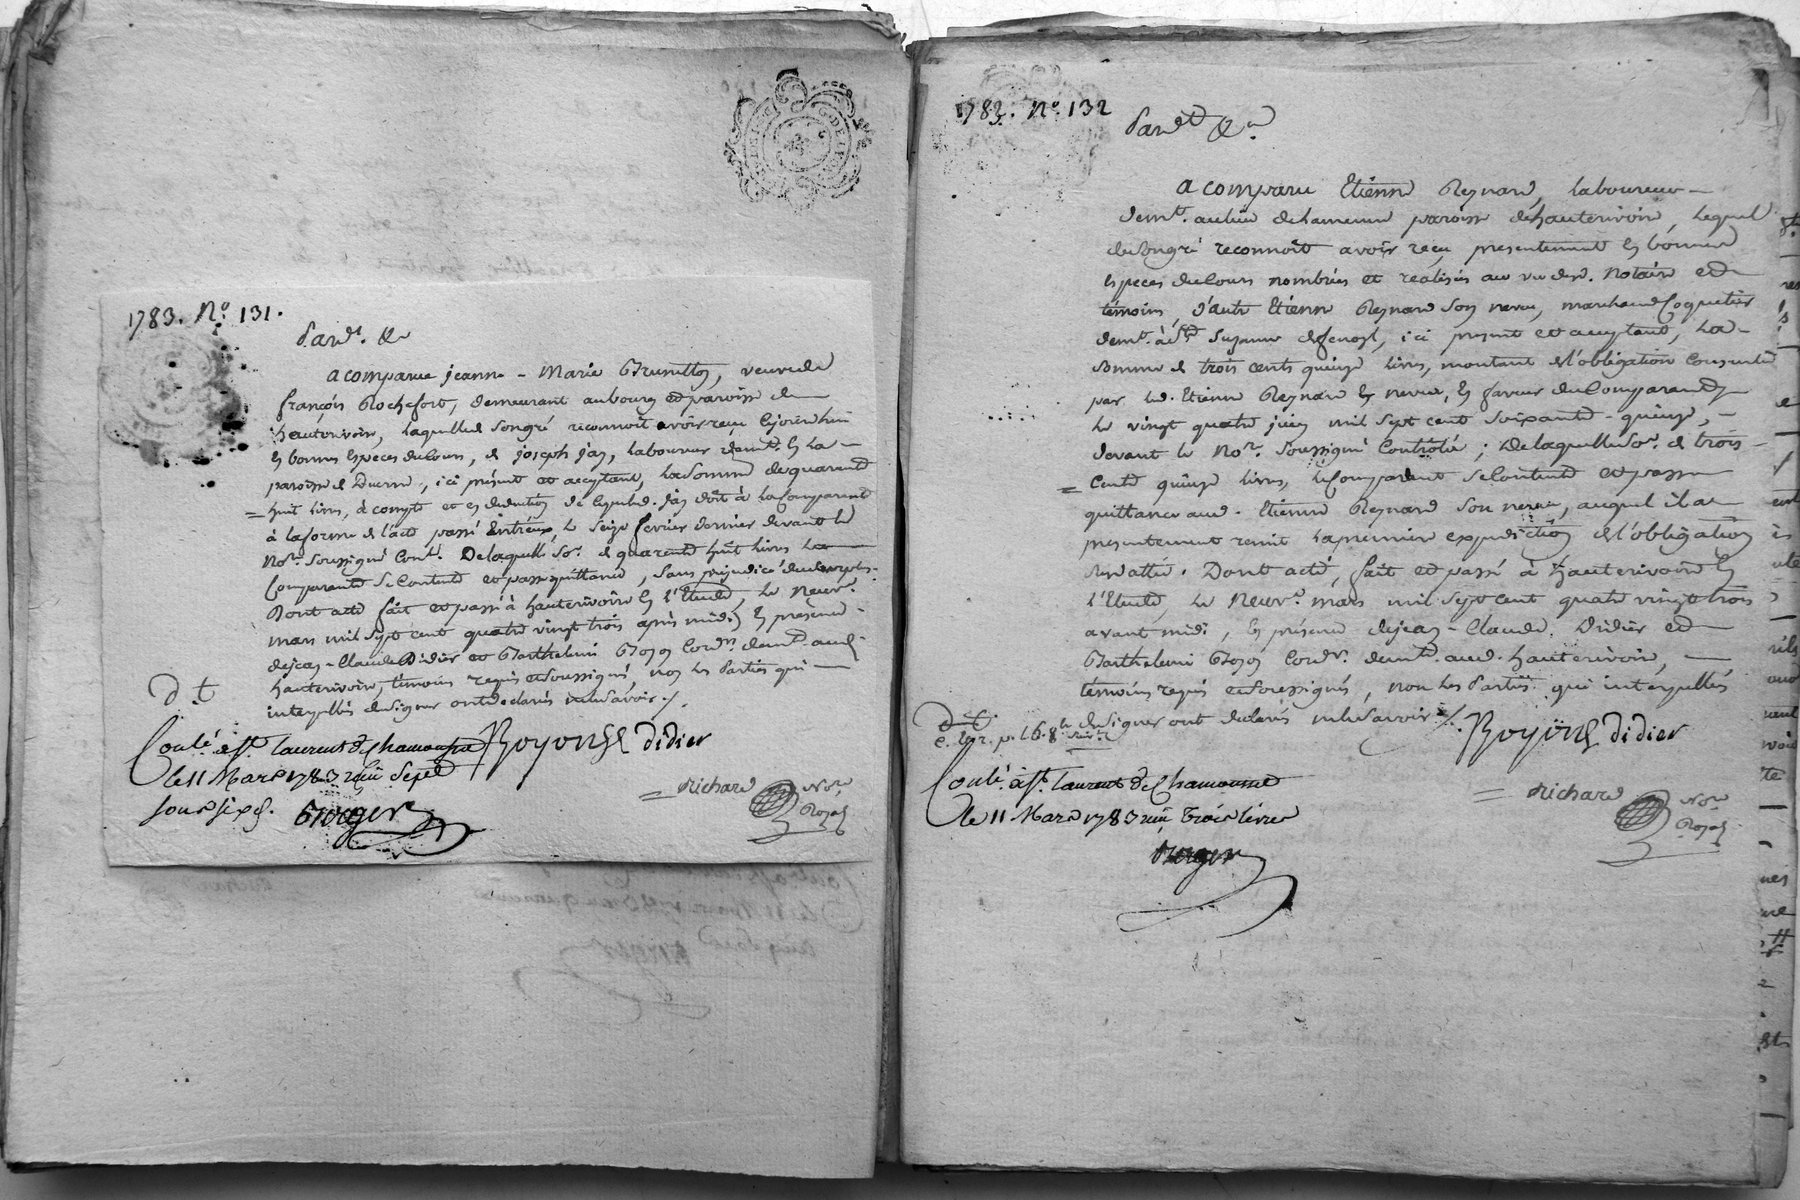 1783. N.º 131.
Pard.t &a
a comparue jeanne-Marie Brunetton, veuve de
françois Rochefort, demeurant au bourg et paroisse de
hauterivoire, laquelle de son gré reconnoît avoir reçu cejourd'hui
en bonnes especes du cours, de joseph jay, laboureur demt. en la
paroisse de Duerne, ici présent et acceptant, la somme de quarante
huit livres, à compte et en deduction de ce que led. jay doit à la comparante
à la forme de l'acte passé entr'eux le seize fevrier dernier devant le
No.re soussigné Cont.é De laquelle so.e de quarante huit livres la
comparante se contente et passe quittance, sans préjudice du surplus.
Dont acte fait et passé à hauterivoire en l'Etude, le neuv.e
mars mil sept cent quatre vingt trois après midi, en présence
de jean-Claude Didier et Barthelemi Boyon Cord.rs demt. aud.
hauterivoire, témoins requis et soussignés, non les Parties qui
interpellées de signer ont déclaré ne le savoir ./.
d t
Boyon Didier
Conlé. à St. laurent de Chamousset
le 11 Mars 1783 reçu sept
sous six d.
Berger
Richard No.re Royal
1783. N.º 132
Pard.t &a
a comparu Etienne Reynard, laboureur
demt. au lieu de paroisse de hauterivoire, lequel
de son gré reconnoît avoir reçu présentement en bonnes
especes du cours nombrées et réalisées au vu desd. Notaire et
témoins, d'autre Etienne Reynard son neveu, marchand coquetier
demt. à Ste. , ici présent et acceptant, la
somme de trois cents quinze livres, montant de l'obligation consentie
par led. Etienne Reynard le neveu, en faveur du comparant
le vingt quatre juin mil sept cent soixante-quinze,
devant le No.re soussigné Controlée; De laquelle so.e de trois
cents quinze livres, le comparant se contente et passe
quittance aud. Etienne Reynard son neveu, auquel il a
présentement remit la premiere expedition de l'obligation
susdattée. Dont acte, fait et passé à hauterivoire en
l'Etude, le Neuv.e mars mil sept cent quatre vingt trois
avant midi, en présence de jean-Claude Didier et
Barthelemi Boyon Cord.rs demt. aud. hauterivoire,
témoins requis et soussignés, non les Parties qui interpellées
de signer ont déclaré ne le savoir ./.
Boyon Didier
Conlé. à St. laurent de Chamousset
le 11 Mars 1783 reçu trois livres
Berger
Richard No.re Royal